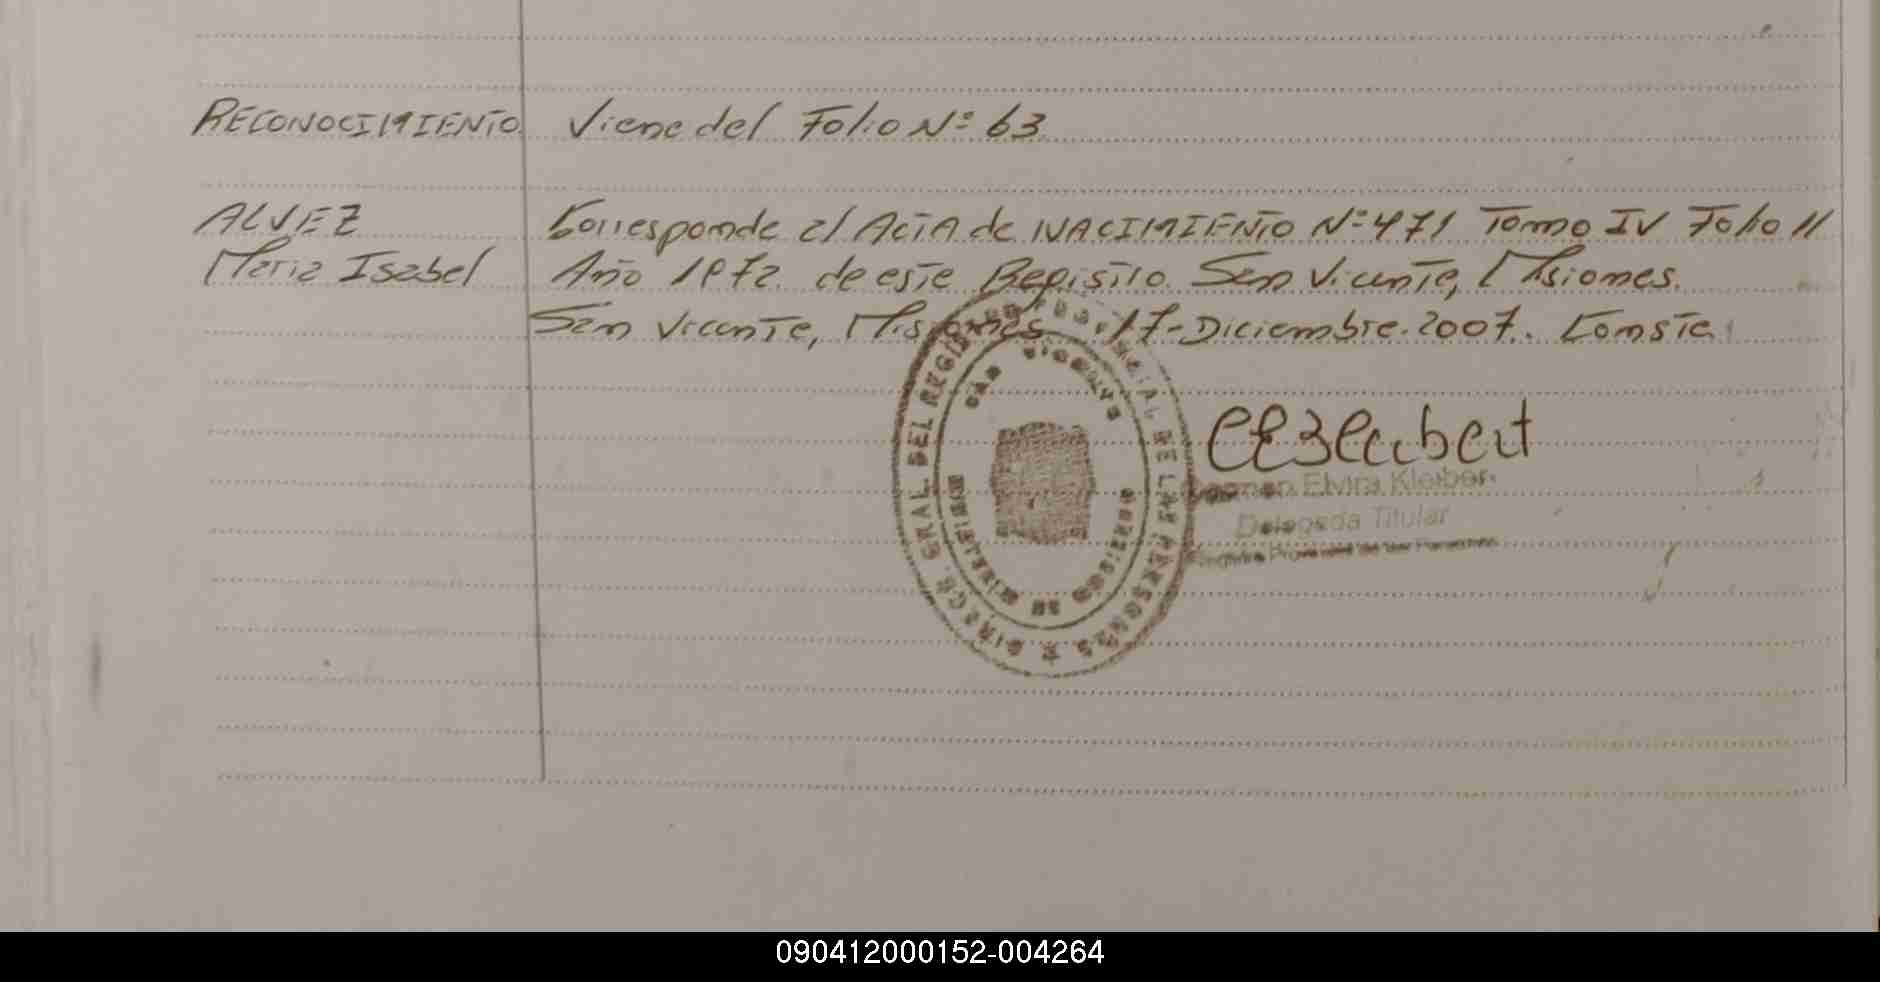 RECONOCIMIENTO Viene del Folio Nº 63
ALVEZ Corresponde al Acta de NACIMIENTO Nº 471 Tomo IV Folio 11
Maria Isabel Año 1972 de este Registro San Vicente, Misiones.
San Vicente, Misiones 17-Diciembre-2007. Conste
DIRECC. GRAL. DEL REGISTRO PROVINCIAL DE LAS PERSONAS
SAN VICENTE
MISIONES
Carmen Elvira Kleiber
Delegada Titular
Registro Provincial de las Personas
090412000152-004264